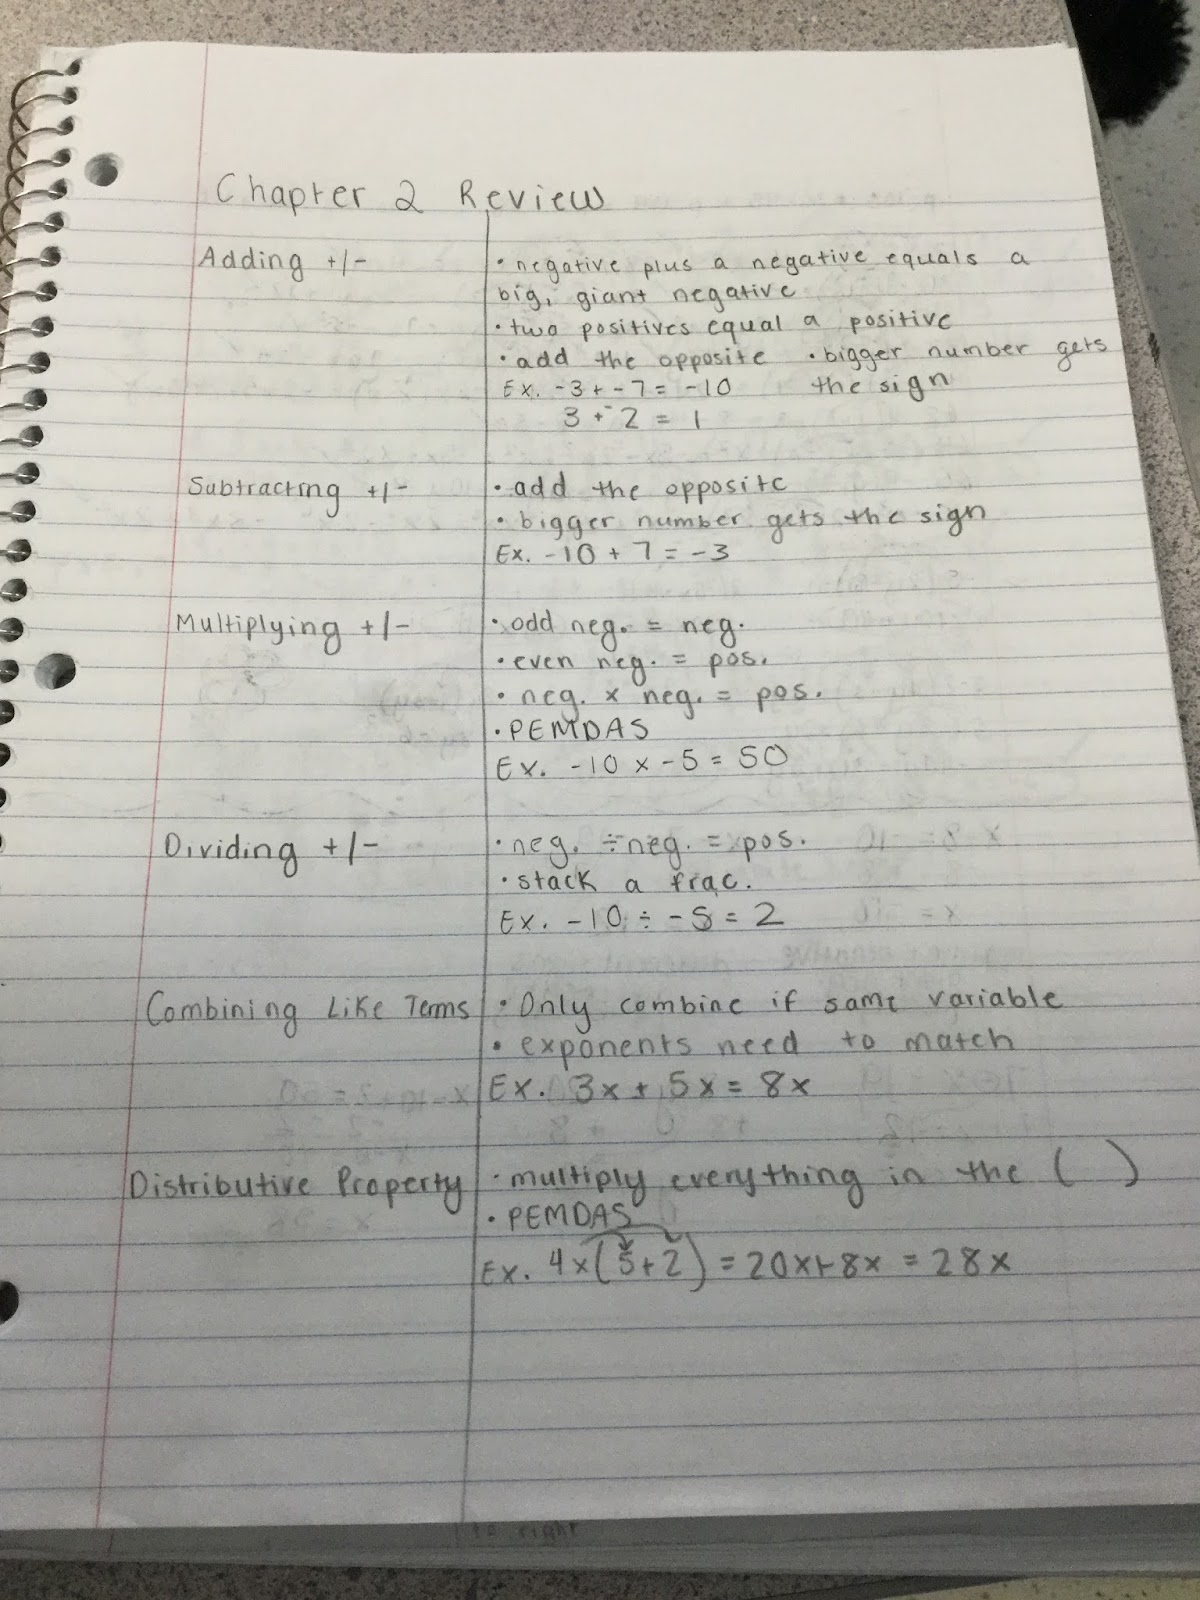 Chapter 2 Review
Adding +/-
• negative plus a negative equals a
big, giant negative
• two positives equal a positive
• add the opposite • bigger number gets
the sign
Ex. -3 + -7 = -10
3 + -2 = 1
Subtracting +/-
• add the opposite
• bigger number gets the sign
Ex. -10 + 7 = -3
Multiplying +/-
• odd neg. = neg.
• even neg. = pos.
• neg. x neg. = pos.
• PEMDAS
Ex. -10 x -5 = 50
Dividing +/-
• neg. ÷ neg. = pos.
• stack a frac.
Ex. -10 ÷ -5 = 2
Combining Like Terms
• Only combine if same variable
• exponents need to match
Ex. 3x + 5x = 8x
Distributive Property
• multiply everything in the ( )
• PEMDAS
Ex. 4x(5+2) = 20x+8x = 28x
to right